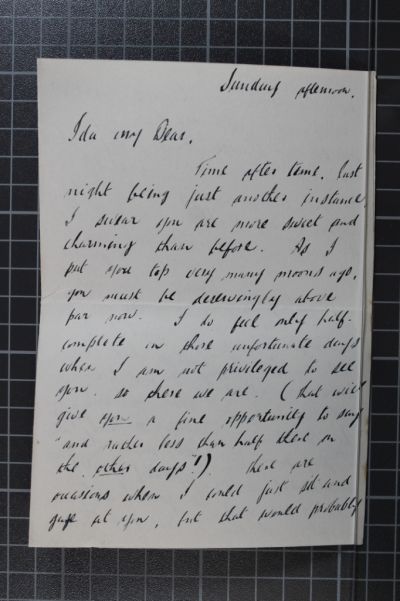 Sunday afternoon.
Ida my Dear,
Time after time, last
night being just another instance,
I swear you are more sweet and
charming than before. As I
put you top very many moons ago,
you must be deservingly above
par now. I do feel only half-
complete on those unfortunate days
when I am not privileged to see
you. so there we are. (that will
give you a fine opportunity to say
"and rather less than half there on
the other days"!). there are
occasions when I could just sit and
gaze at you, but that would probably